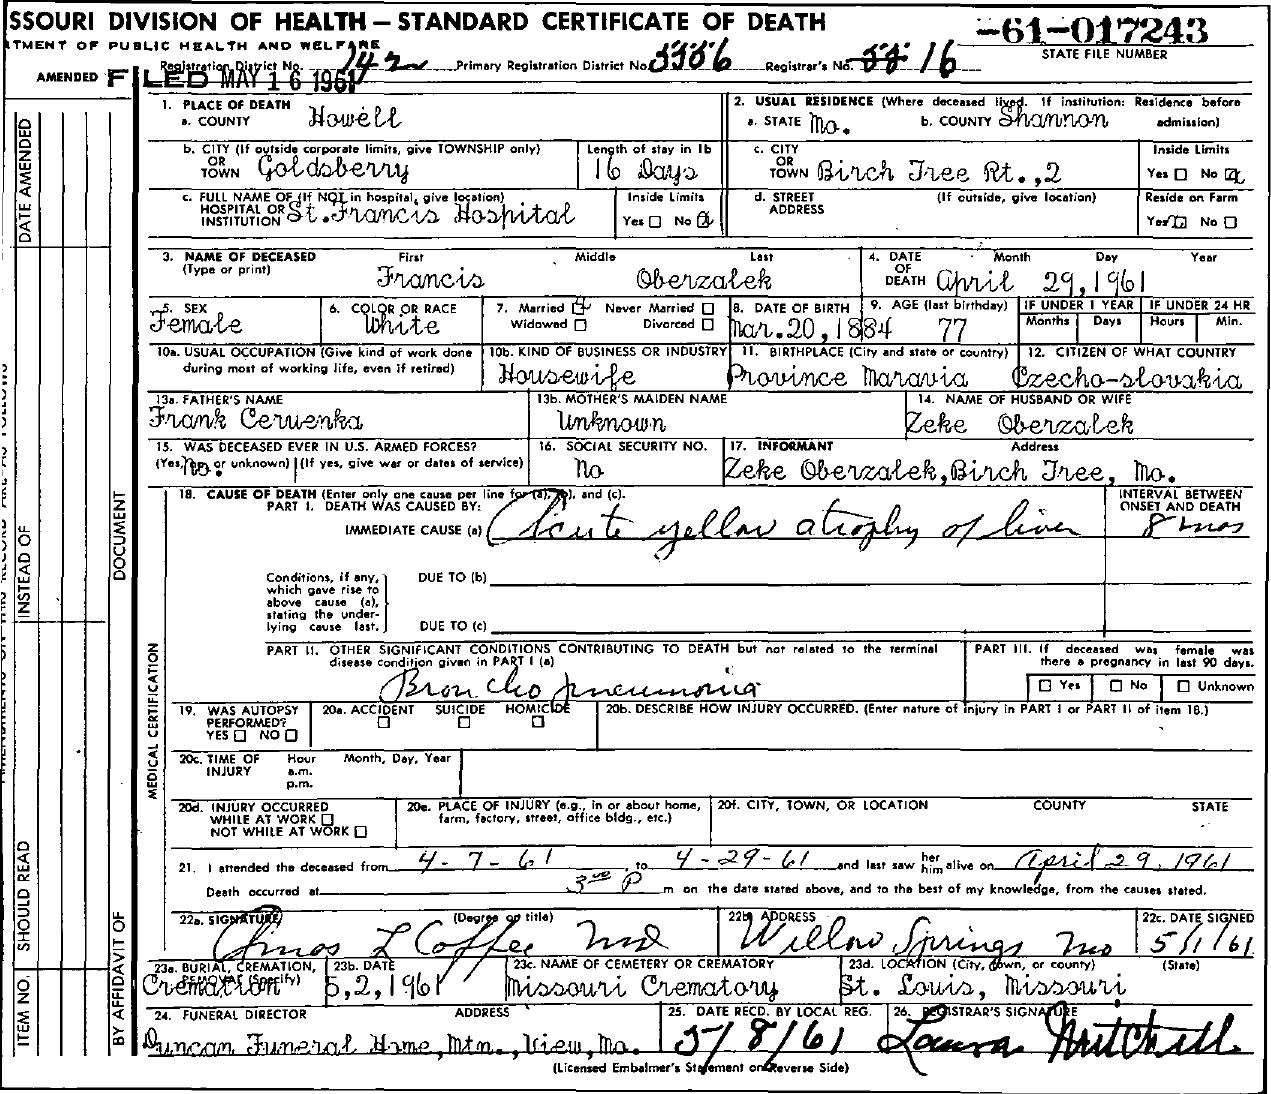 SSOURI DIVISION OF HEALTH — STANDARD CERTIFICATE OF DEATH
-61-017243
TMENT OF PUBLIC HEALTH AND WELFARE
STATE FILE NUMBER
AMENDED
FILED MAY 16 1961
Registration District No. 742 Primary Registration District No. 5556 Registrar's No. 16
1. PLACE OF DEATH
a. COUNTY Howell
2. USUAL RESIDENCE (Where deceased lived. If institution: Residence before admission)
a. STATE Mo. b. COUNTY Shannon
b. CITY (If outside corporate limits, give TOWNSHIP only)
OR TOWN Goldsberry
Length of stay in 1b
16 Days
c. CITY OR TOWN Birch Tree Rt.,2
Inside Limits
Yes □ No ☒
c. FULL NAME OF (If NOT in hospital, give location)
HOSPITAL OR INSTITUTION St. Francis Hospital
Inside Limits
Yes □ No ☒
d. STREET ADDRESS
(If outside, give location)
Reside on Farm
Yes ☒ No □
3. NAME OF DECEASED
(Type or print)
First Middle Last
Francis Oberzalek
4. DATE OF DEATH
Month Day Year
April 29, 1961
5. SEX
Female
6. COLOR OR RACE
White
7. Married ☒ Never Married □
Widowed □ Divorced □
8. DATE OF BIRTH
Mar. 20, 1884
9. AGE (last birthday)
77
IF UNDER 1 YEAR
Months Days
IF UNDER 24 HR
Hours Min.
10a. USUAL OCCUPATION (Give kind of work done
during most of working life, even if retired)
10b. KIND OF BUSINESS OR INDUSTRY
Housewife
11. BIRTHPLACE (City and state or country)
Province Maravia
12. CITIZEN OF WHAT COUNTRY
Czecho-slovakia
13a. FATHER'S NAME
Frank Ceruenka
13b. MOTHER'S MAIDEN NAME
Unknown
14. NAME OF HUSBAND OR WIFE
Zeke Oberzalek
15. WAS DECEASED EVER IN U.S. ARMED FORCES?
(Yes, no, or unknown) (If yes, give war or dates of service)
no.
16. SOCIAL SECURITY NO.
No
17. INFORMANT Address
Zeke Oberzalek, Birch Tree, Mo.
18. CAUSE OF DEATH (Enter only one cause per line for (a), (b), and (c).
PART I. DEATH WAS CAUSED BY:
IMMEDIATE CAUSE (a) Acute yellow atrophy of liver
INTERVAL BETWEEN
ONSET AND DEATH
8 mos
Conditions, if any,
which gave rise to
above cause (a),
stating the under-
lying cause last.
DUE TO (b)
DUE TO (c)
PART II. OTHER SIGNIFICANT CONDITIONS CONTRIBUTING TO DEATH but not related to the terminal
disease condition given in PART I (a)
Broncho pneumonia
PART III. If deceased was female was
there a pregnancy in last 90 days.
□ Yes □ No □ Unknown
19. WAS AUTOPSY
PERFORMED?
YES □ NO □
20a. ACCIDENT SUICIDE HOMICIDE
□ □ □
20b. DESCRIBE HOW INJURY OCCURRED. (Enter nature of injury in PART I or PART II of item 18.)
20c. TIME OF INJURY
Hour a.m. p.m.
Month, Day, Year
20d. INJURY OCCURRED
WHILE AT WORK □
NOT WHILE AT WORK □
20e. PLACE OF INJURY (e.g., in or about home,
farm, factory, street, office bldg., etc.)
20f. CITY, TOWN, OR LOCATION COUNTY STATE
21. I attended the deceased from 4-7-61 to 4-29-61 and last saw her him alive on April 29, 1961
Death occurred at 3 00 P m on the date stated above, and to the best of my knowledge, from the causes stated.
22a. SIGNATURE (Degree or title)
Amos L Coffee MD
22b. ADDRESS
Willow Springs Mo
22c. DATE SIGNED
5/1/61
23a. BURIAL, CREMATION,
REMOVAL (Specify)
Cremation
23b. DATE
5,2,1961
23c. NAME OF CEMETERY OR CREMATORY
Missouri Crematory
23d. LOCATION (City, town, or county) (State)
St. Louis, Missouri
24. FUNERAL DIRECTOR ADDRESS
Duncan Funeral Home, Mtn., View, Mo.
25. DATE RECD. BY LOCAL REG.
5/8/61
26. REGISTRAR'S SIGNATURE
Laura Mitchell
(Licensed Embalmer's Statement on Reverse Side)
DATE AMENDED
INSTEAD OF
SHOULD READ
ITEM NO.
DOCUMENT
BY AFFIDAVIT OF
MEDICAL CERTIFICATION